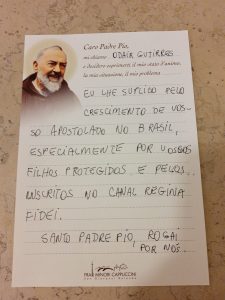 Caro Padre Pio,
mi chiamo ODAIR GUTIRRES
e desidero esprimerti il mio stato d'animo,
la mia situazione, il mio problema
EU LHE SUPLICO PELO
CRESCIMENTO DE VOS-
SO APOSTOLADO NO BRASIL,
ESPECIALMENTE POR VOSSOS
FILHOS PROTEGIDOS E PELOS
INSCRITOS NO CANAL REGINA
FIDEI.
SANTO PADRE PIO, ROGAI
POR NÓS.
FRATI MINORI CAPPUCCINI
San Giovanni Rotondo